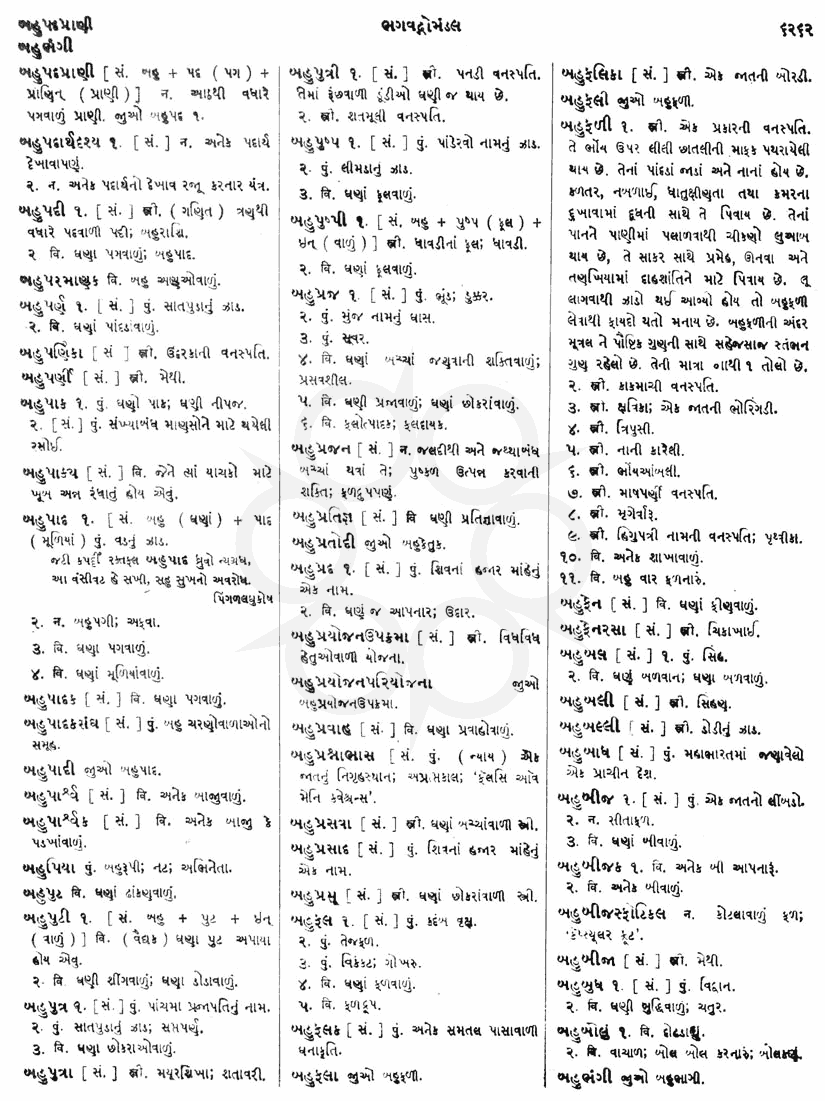 બહુપદપ્રાણી
ભગવદ્ગોમંડલ
૬૨૬૨
બહુભંગી
બહુપદપ્રાણી [ સં. બહુ + પદ ( પગ ) +
પ્રાણિન્ ( પ્રાણી ) ] ન. આઠથી વધારે
પગવાળું પ્રાણી. જુઓ બહુપદ ૧.
બહુપદાર્થદૃશ્ય ૧. [ સં. ] ન. અનેક પદાર્થ
દેખાવાપણું.
૨. ન. અનેક પદાર્થનો દેખાવ રજૂ કરનાર યંત્ર.
બહુપદી ૧. [ સં. ] સ્ત્રી. ( ગણિત ) ત્રણથી
વધારે પદવાળી પદી; બહુરાશિ.
૨ વિ. ઘણા પગવાળું; બહુપાદ.
બહુપરમાણુક વિ. બહુ અણુઓવાળું.
બહુપર્ણ ૧. [ સં. ] પું. સાતપુડાનું ઝાડ.
૨. વિ. ઘણાં પાંદડાંવાળું.
બહુપર્ણિકા [ સં ] સ્ત્રી. ઉંદરકાની વનસ્પતિ.
બહુપર્ણી [ સં. ] સ્ત્રી. મેથી.
બહુપાક ૧. પું. ઘણો પાક; ઘણી નીપજ.
૨. [ સં. ] પું. સંખ્યાબંધ માણસોને માટે થયેલી
રસોઈ.
બહુપાક્ય [ સં. ] વિ. જેને ત્યાં યાચકો માટે
ખૂબ અન્ન રંધાતું હોય એવું.
બહુપાદ ૧. [ સં. બહુ ( ઘણાં ) + પાદ
( મૂળિયાં ) પું. વડનું ઝાડ.
જટી કપર્દી રક્તફલ બહુપાદ ધ્રુવો ન્યગ્રોધ,
આ વંસીવટ હે સખી, સહુ સુખનો અવરોધ.
પિંગળલઘુકોષ
૨. ન. બહુપગી; અષ્ટવા.
૩. વિ. ઘણા પગવાળું.
૪. વિ. ઘણાં મૂળિયાંવાળું.
બહુપાદક [ સં. ] વિ. ઘણા પગવાળું.
બહુપાદકસંઘ [ સં. ] પું. બહુ ચરણોવાળાઓનો
સમૂહ.
બહુપાદી જુઓ બહુપાદ.
બહુપાર્શ્વ [ સં. ] વિ. અનેક બાજુવાળું.
બહુપાર્શ્વક [ સં. ] વિ. અનેક બાજુ કે
પડખાંવાળું.
બહુપિયા પું. બહુરૂપી; નટ; અભિનેતા.
બહુપુટ વિ. ઘણાં ઢાંકણવાળું.
બહુપુટી ૧. [ સં. બહુ + પુટ + ઇન્
( વાળું ) ] વિ. ( વૈદ્યક ) ઘણા પુટ અપાયા
હોય એવું.
૨. વિ. ઘણી શીંગવાળું; ઘણા ડોડાવાળું.
બહુપુત્ર ૧. [ સં. ] પું. પાંચમા પ્રજાપતિનું નામ.
૨. પું. સાતપુડાનું ઝાડ; સપ્તપર્ણ.
૩. વિ. ઘણા છોકરાઓવાળું.
બહુપુત્રા [ સં. ] સ્ત્રી. મયૂરશિખા; શતાવરી.
બહુપુત્રી ૧. [ સં. ] સ્ત્રી. પનડી વનસ્પતિ.
તેમાં રૂંછવાળી ડૂંડીઓ ઘણી જ થાય છે.
૨. સ્ત્રી. શતમૂલી વનસ્પતિ.
બહુપુષ્પ ૧. [ સં. ] પું. પાંડેરવો નામનું ઝાડ.
૨. પું. લીમડાનું ઝાડ.
૩. વિ. ઘણાં ફૂલવાળું.
બહુપુષ્પી ૧. [ સં. બહુ + પુષ્પ ( ફૂલ ) +
ઇન્ ( વાળું ) ] સ્ત્રી. ધાવડીનાં ફૂલ; ધાવડી.
૨. વિ. ઘણાં ફૂલવાળું.
બહુપ્રજ ૧. [ સં. ] પું. ભૂંડ; ડુક્કર.
૨. પું. મુંજ નામનું ઘાસ.
૩. પું. સૂવર.
૪. વિ. ઘણાં બચ્ચાં જણવાની શક્તિવાળું;
પ્રસવશીલ.
૫. વિ. ઘણી પ્રજાવાળું; ઘણાં છોકરાંવાળું.
૬. વિ. ફલોત્પાદક; ફલદાયક.
બહુપ્રજન [ સં. ] ન. જલદીથી અને જથ્થાબંધ
બચ્ચાં થવાં તે; પુષ્કળ ઉત્પન્ન કરવાની
શક્તિ; ફળદ્રુપપણું.
બહુપ્રતિજ્ઞ [ સં. ] વિ ઘણી પ્રતિજ્ઞાવાળું.
બહુપ્રતોદી જુઓ બહુહેતુક.
બહુપ્રદ ૧. [ સં. ] પું. શિવનાં હજાર માંહેનું
એક નામ.
૨. વિ. ઘણું જ આપનાર; ઉદાર.
બહુપ્રયોજનઉપક્રમા [ સં. ] સ્ત્રી. વિધવિધ
હેતુઓવાળી યોજના.
બહુપ્રયોજનપરિયોજના જુઓ
બહુપ્રયોજનઉપક્રમા.
બહુપ્રવાહ [ સં. ] વિ. ઘણા પ્રવાહોવાળું.
બહુપ્રશ્નાભાસ [ સં. પું. ( ન્યાય ) એક
જાતનું નિગ્રહસ્થાન; અપ્રાપ્તકાલ; ‘ફૅલસિ ઑવ
મેનિ ક્વેશ્ચન્સ’.
બહુપ્રસવા [ સં. ] સ્ત્રી. ઘણાં બચ્ચાંવાળી સ્ત્રી.
બહુપ્રસાદ [ સં. ] પું. શિવનાં હજાર માંહેનું
એક નામ.
બહુપ્રસૂ [ સં. ] સ્ત્રી. ઘણાં છોકરાંવાળી સ્ત્રી.
બહુફલ ૧. [ સં. ] પું. કદંબ વૃક્ષ.
૨. પું. તેજફળ.
૩. પું. વિકંકટ; ગોખરુ.
૪. વિ. ઘણાં ફળવાળું.
૫. વિ. ફળદ્રૂપ.
બહુફલક [ સં. ] પું. અનેક સમતલ પાસાવાળી
ઘનાકૃતિ.
બહુફલા જુઓ બહુફળી.
બહુફલિકા [ સં. ] સ્ત્રી. એક જાતની બોરડી.
બહુફલી જુઓ બહુફળી.
બહુફળી ૧. સ્ત્રી. એક પ્રકારની વનસ્પતિ.
તે ભોંય ઉપર લીલી છાતલીની માફક પથરાયેલી
થાય છે. તેનાં પાંદડાં જાડાં અને નાનાં હોય છે.
કળતર, નબળાઈ, ધાતુક્ષીણતા તથા કમરના
દુખાવામાં દૂધની સાથે તે પિવાય છે. તેનાં
પાનને પાણીમાં પલાળવાથી ચીકણો લુઆબ
થાય છે, તે સાકર સાથે પ્રમેહ, ઊનવા અને
તણખિયામાં દાહશાંતિને માટે પિવાય છે. લૂ
લાગવાથી ઝાડો થઈ આવ્યો હોય તો બહુફળી
લેવાથી ફાયદો થતો મનાય છે. બહુફળીની અંદર
મૂત્રલ ને પૌષ્ટિક ગુણની સાથે સહેજસાજ સ્તંભન
ગુણ રહેલો છે. તેની માત્રા ૦ાથી ૧ તોલો છે.
૨. સ્ત્રી. કાકમાચી વનસ્પતિ.
૩. સ્ત્રી. ક્ષવિકા; એક જાતની ભોરિંગડી.
૪. સ્ત્રી. ત્રિપુસી.
૫. સ્ત્રી. નાની કારેલી.
૬. સ્ત્રી. ભોંયઆંબલી.
૭. સ્ત્રી. માષપર્ણી વનસ્પતિ.
૮. સ્ત્રી. મૃગેર્વારુ.
૯. સ્ત્રી. હિંગુપત્રી નામની વનસ્પતિ; પૃથ્વીકા.
૧૦. વિ. અનેક શાખાવાળું.
૧૧. વિ. બહુ વાર ફળનારું.
બહુફેન [ સં. ] વિ. ઘણાં ફીણવાળું.
બહુફેનરસા [ સં. ] સ્ત્રી. ચિકાખાઈ.
બહુબલ [ સં. ] ૧. પું. સિંહ.
૨. વિ. ઘણું બળવાન; ઘણા બળવાળું.
બહુબલી [ સં. ] સ્ત્રી. સિંહણ.
બહુબલ્લી [ સં. ] સ્ત્રી. ડોડીનું ઝાડ.
બહુબાધ [ સં. ] પું. મહાભારતમાં જણાવેલો
એક પ્રાચીન દેશ.
બહુબીજ ૧. [ સં. ] પું. એક જાતનો લીંબડો.
૨. ન. સીતાફળ.
૩. વિ. ઘણાં બીવાળું.
બહુબીજક ૧. વિ. અનેક બી આપનારું.
૨. વિ. અનેક બીવાળું.
બહુબીજસ્ફોટિકલ ન. કોટલાવાળું ફળ;
‘કૅપ્સ્યૂલર ફ્રૂટ’.
બહુબીજા [ સં. ] સ્ત્રી. મેથી.
બહુબુધ ૧. [ સં. ] પું. વિદ્વાન.
૨. વિ. ઘણી બુદ્ધિવાળું; ચતુર.
બહુબોલું ૧. વિ. દોઢડાહ્યું.
૨. વિ. વાચાળ; બોલ બોલ કરનારું; બોલકણું.
બહુભંગી જુઓ બહુભાગી.